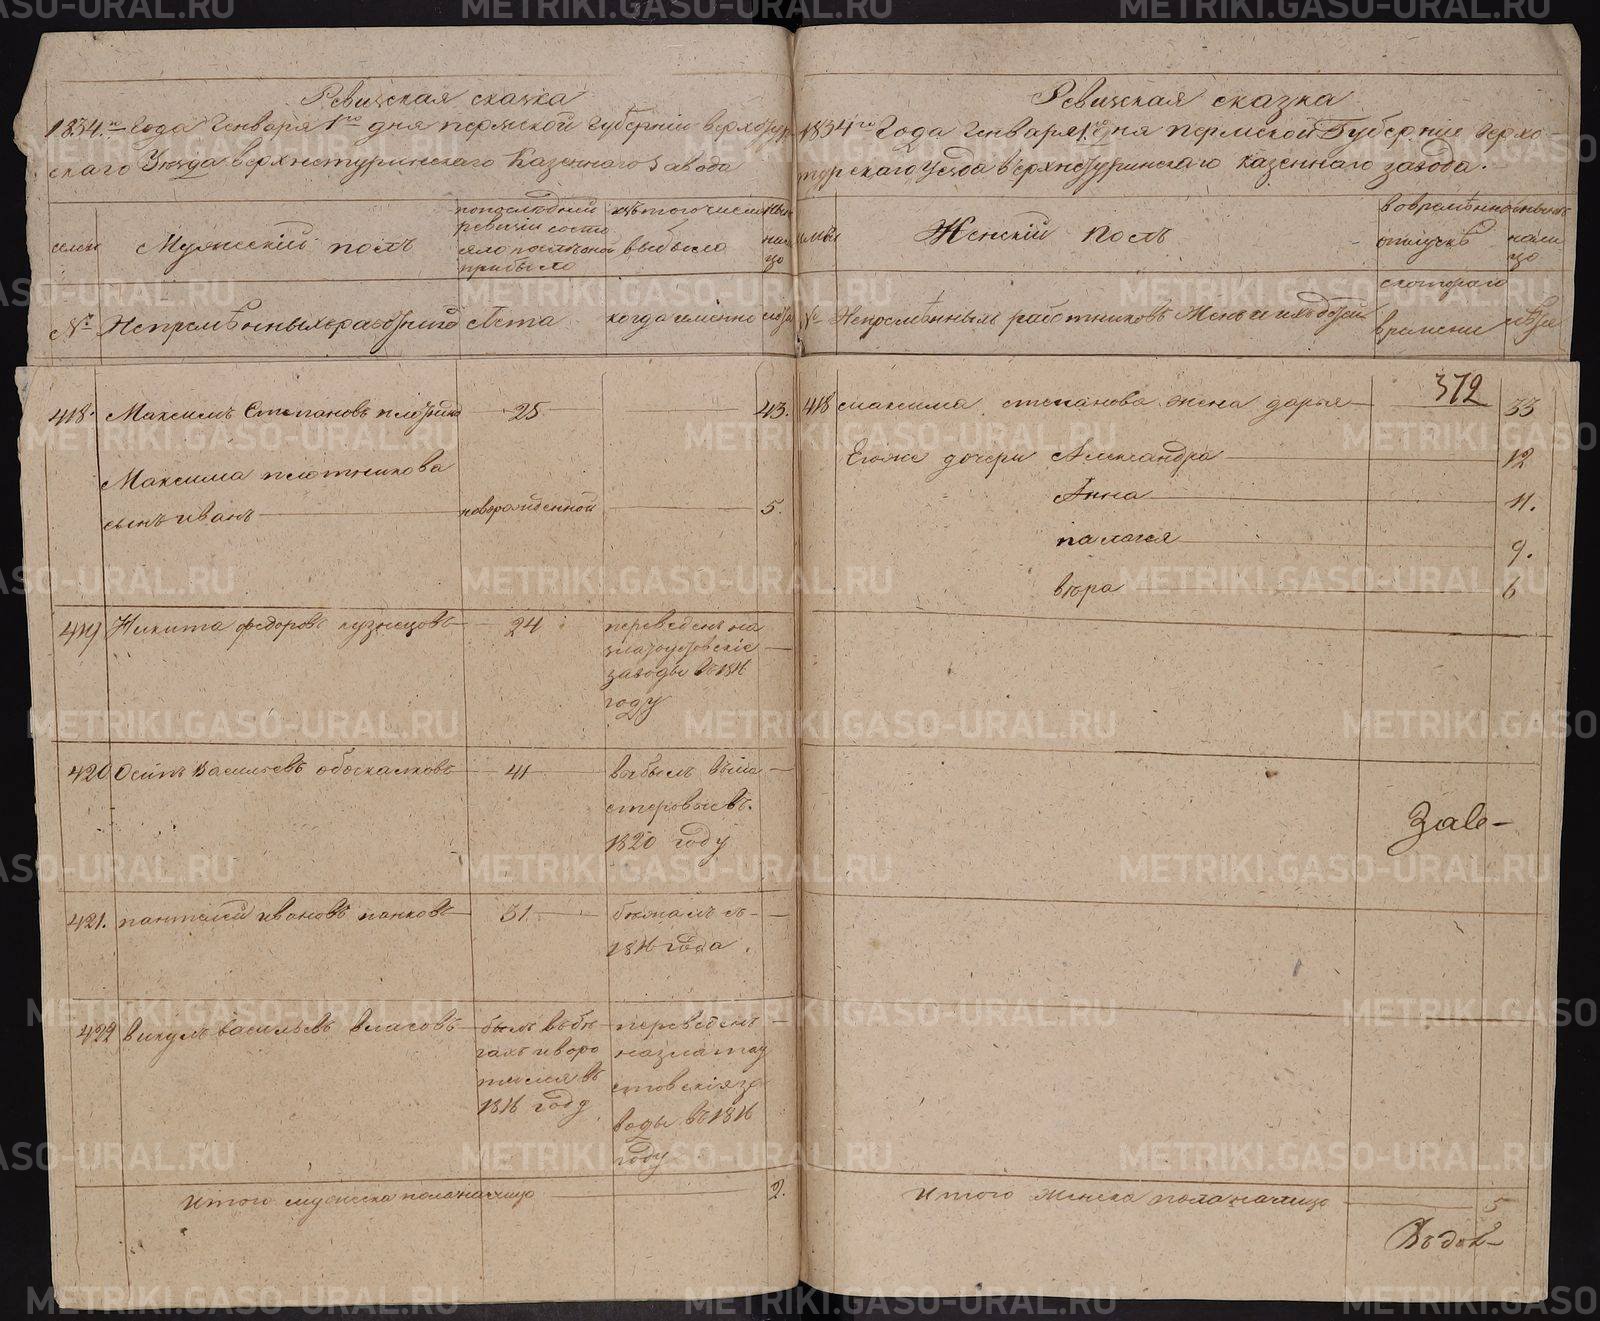 Ревизская сказка
1834.го Года Генваря 1го дня пермской Губернии верхотур
скаго Уезда верхнетуринскаго Казеннаго Завода
семеи
Мужский полъ
попоследней
ревизии состо
яло и после оной
прибыло
изъ того числа
выбыло
ныне
на ли
цо
№
Непременныхъ работниковъ
Лета
когда именно
лета
418.
Максимъ Степановъ плотников
25
43.
Максима плотникова
сынъ иванъ
новорожденной
5.
419
Никита федоровъ кузнецовъ
24
переведенъ на
златоустовские
заводы въ 1816
году
420
Осипъ Васильевъ обоскаловъ
41
выбылъ въ ма
стеровые въ.
1820 году
421.
пантелей ивановъ панковъ
31
бежалъ съ
1816 года.
422
викулъ васильевъ власовъ
былъ въ бе
гахъ и воро
тился въ
1816 году
переведенъ
на златоу
стовския за
воды въ 1816
году
итого мужеска пола на лицо
2.
Ревизская сказка
1834го Года Генваря 1го дня пермской Губернии Верхо-
турскаго Уезда верхнетуринскаго казеннаго завода.
семьи
Женский полъ
во временной
отлучке
ныне на
ли
цо
№
Непременныхъ работниковъ Жены и ихъ дети
с котораго
времени
лета
372
418
максима степанова жена дарья
33
Его же дочери Александра
12
Анна
11.
палагея
9.
вѣра
6
Заве-
итого женска пола на лицо
5